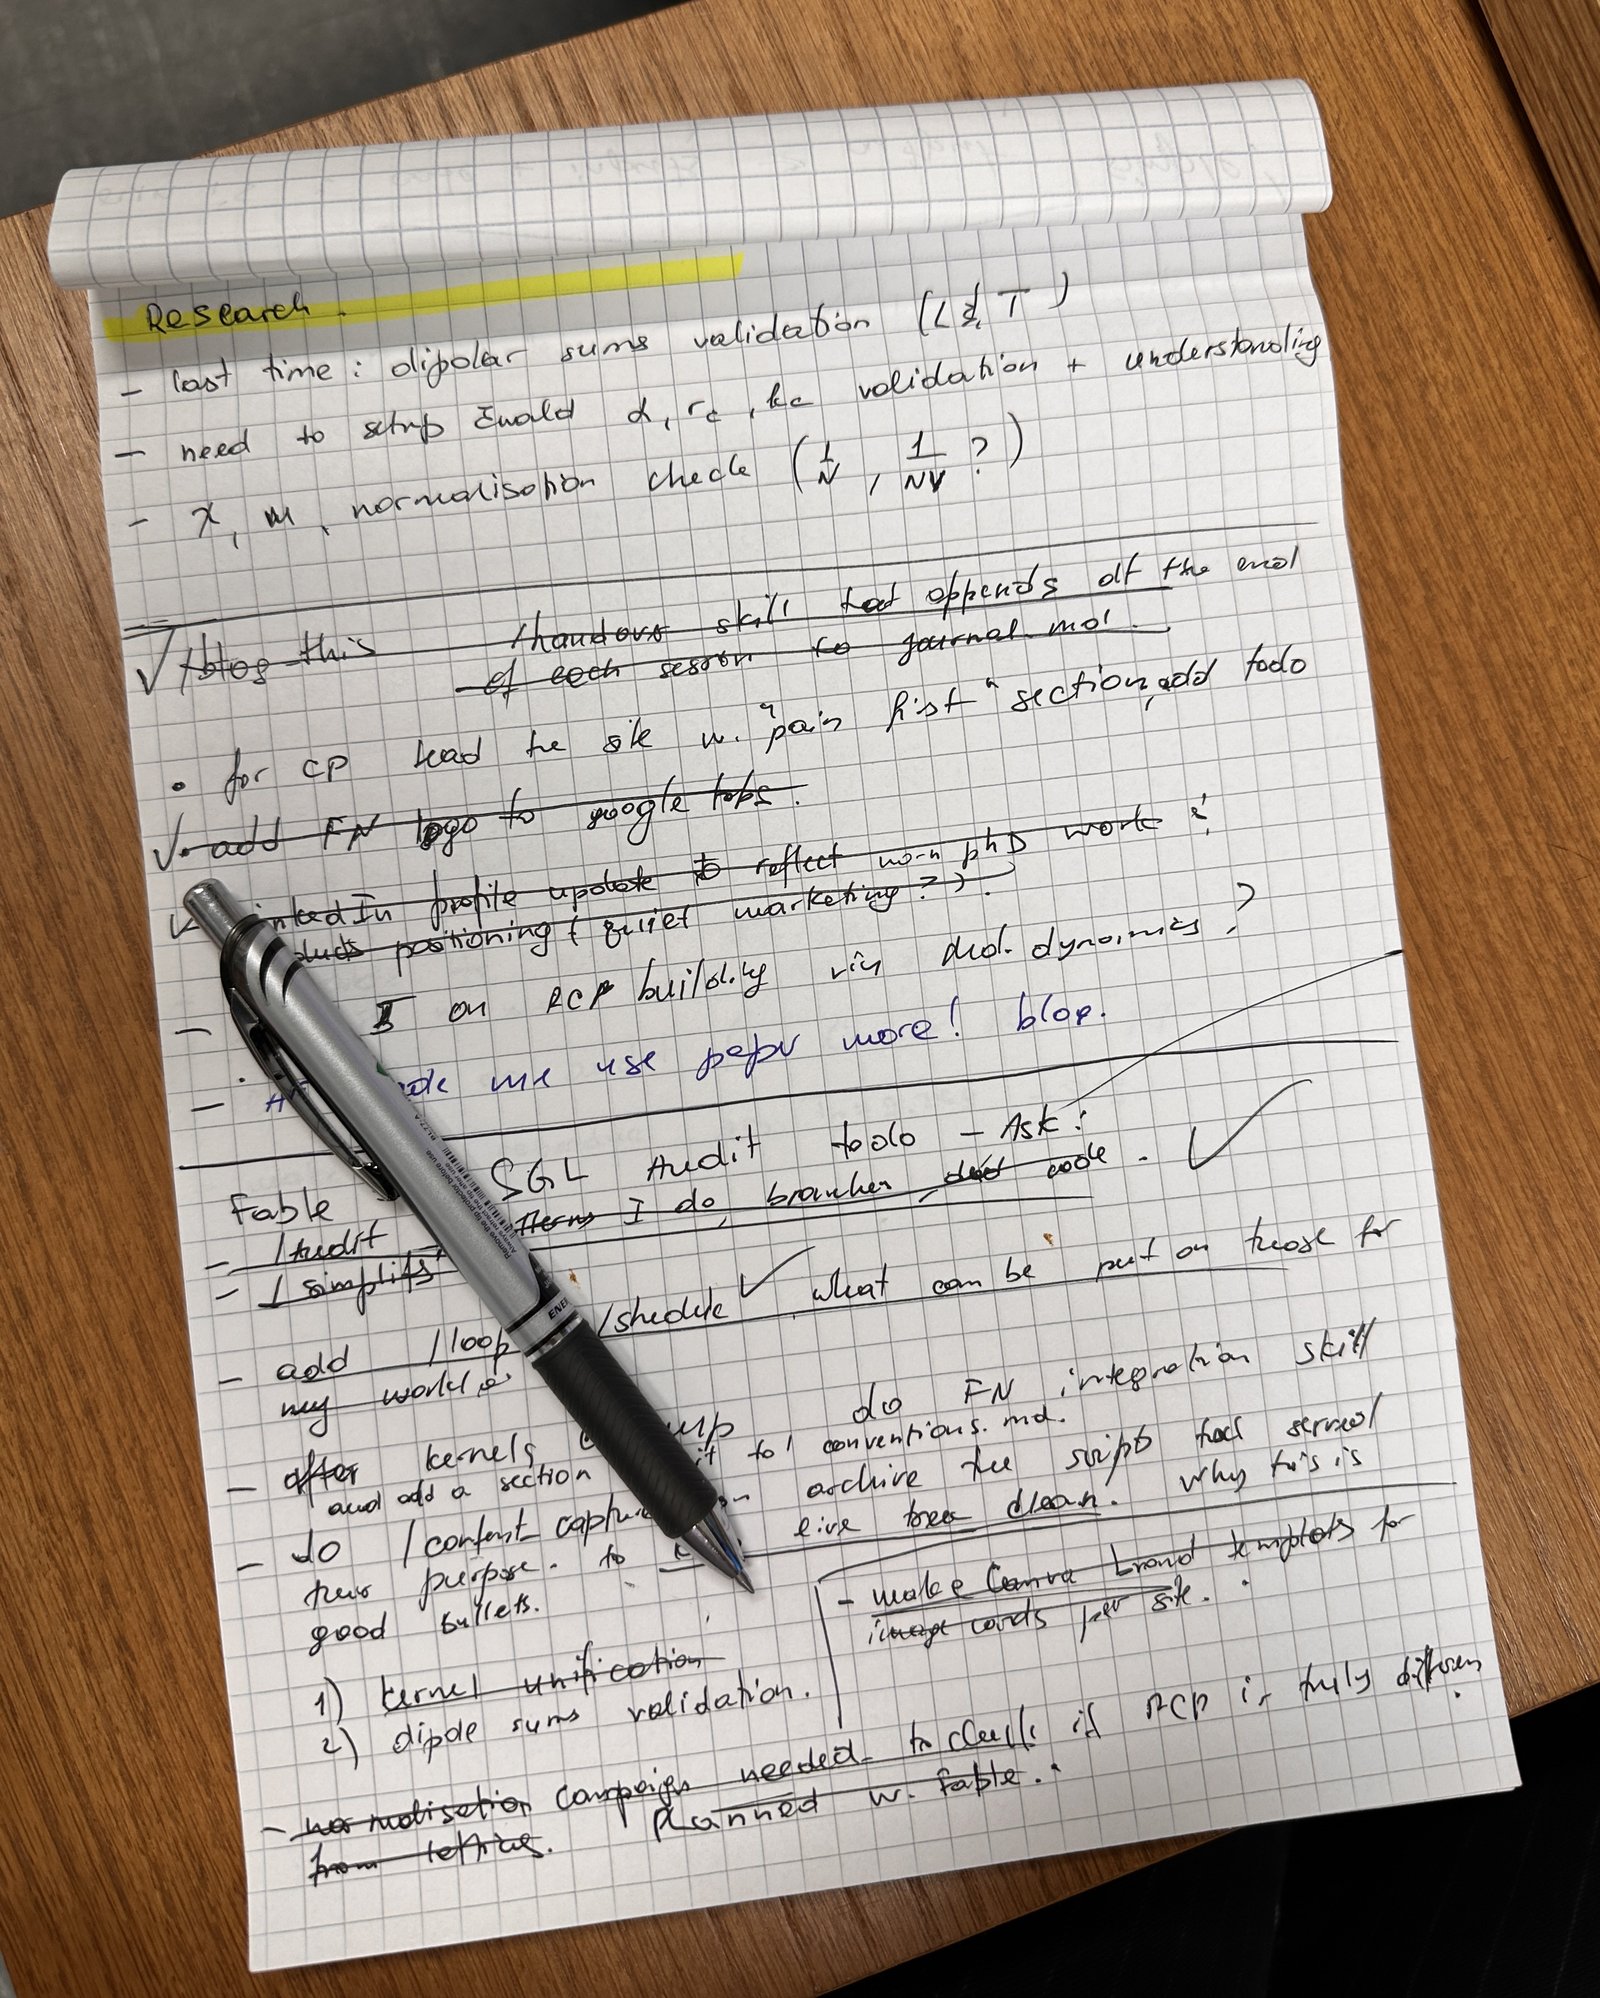 Research.
- last time: dipolar sums validation (L T)
- need to setup Ewald α, rc, kc validation + understanding
- χ, m, normalisation check (1/N, 1/NV ?)
✓ /blog-this /handover skill that appends at the end
of each session to journal.md.
• for CP lead the site w. "pain first" section, add todo
✓• add FN logo to google tabs.
✓ inkedIn profile update to reflect non-phD work &
positioning (quiet marketing?).
- I on RCP building via mol. dynamics?
- me use paper more! blog.
Fable SGL Audit todo - Ask:
- /Audit I do, branches, dead code. ✓
- /simplify
- add /loop /shedule ✓ what can be put on those for
my work
- after kernels do FN integration skill
and add a section it to conventions.md.
- do /content-capture archive the scripts that served
their purpose. to live tree clean. why this is
good bullets.
- make Canva brand templates for
image cards per site.
1) kernel unification
2) dipole sums validation.
- normalisation campaign needed to check if RCP is truly different
from lattice. Planned w. Fable.